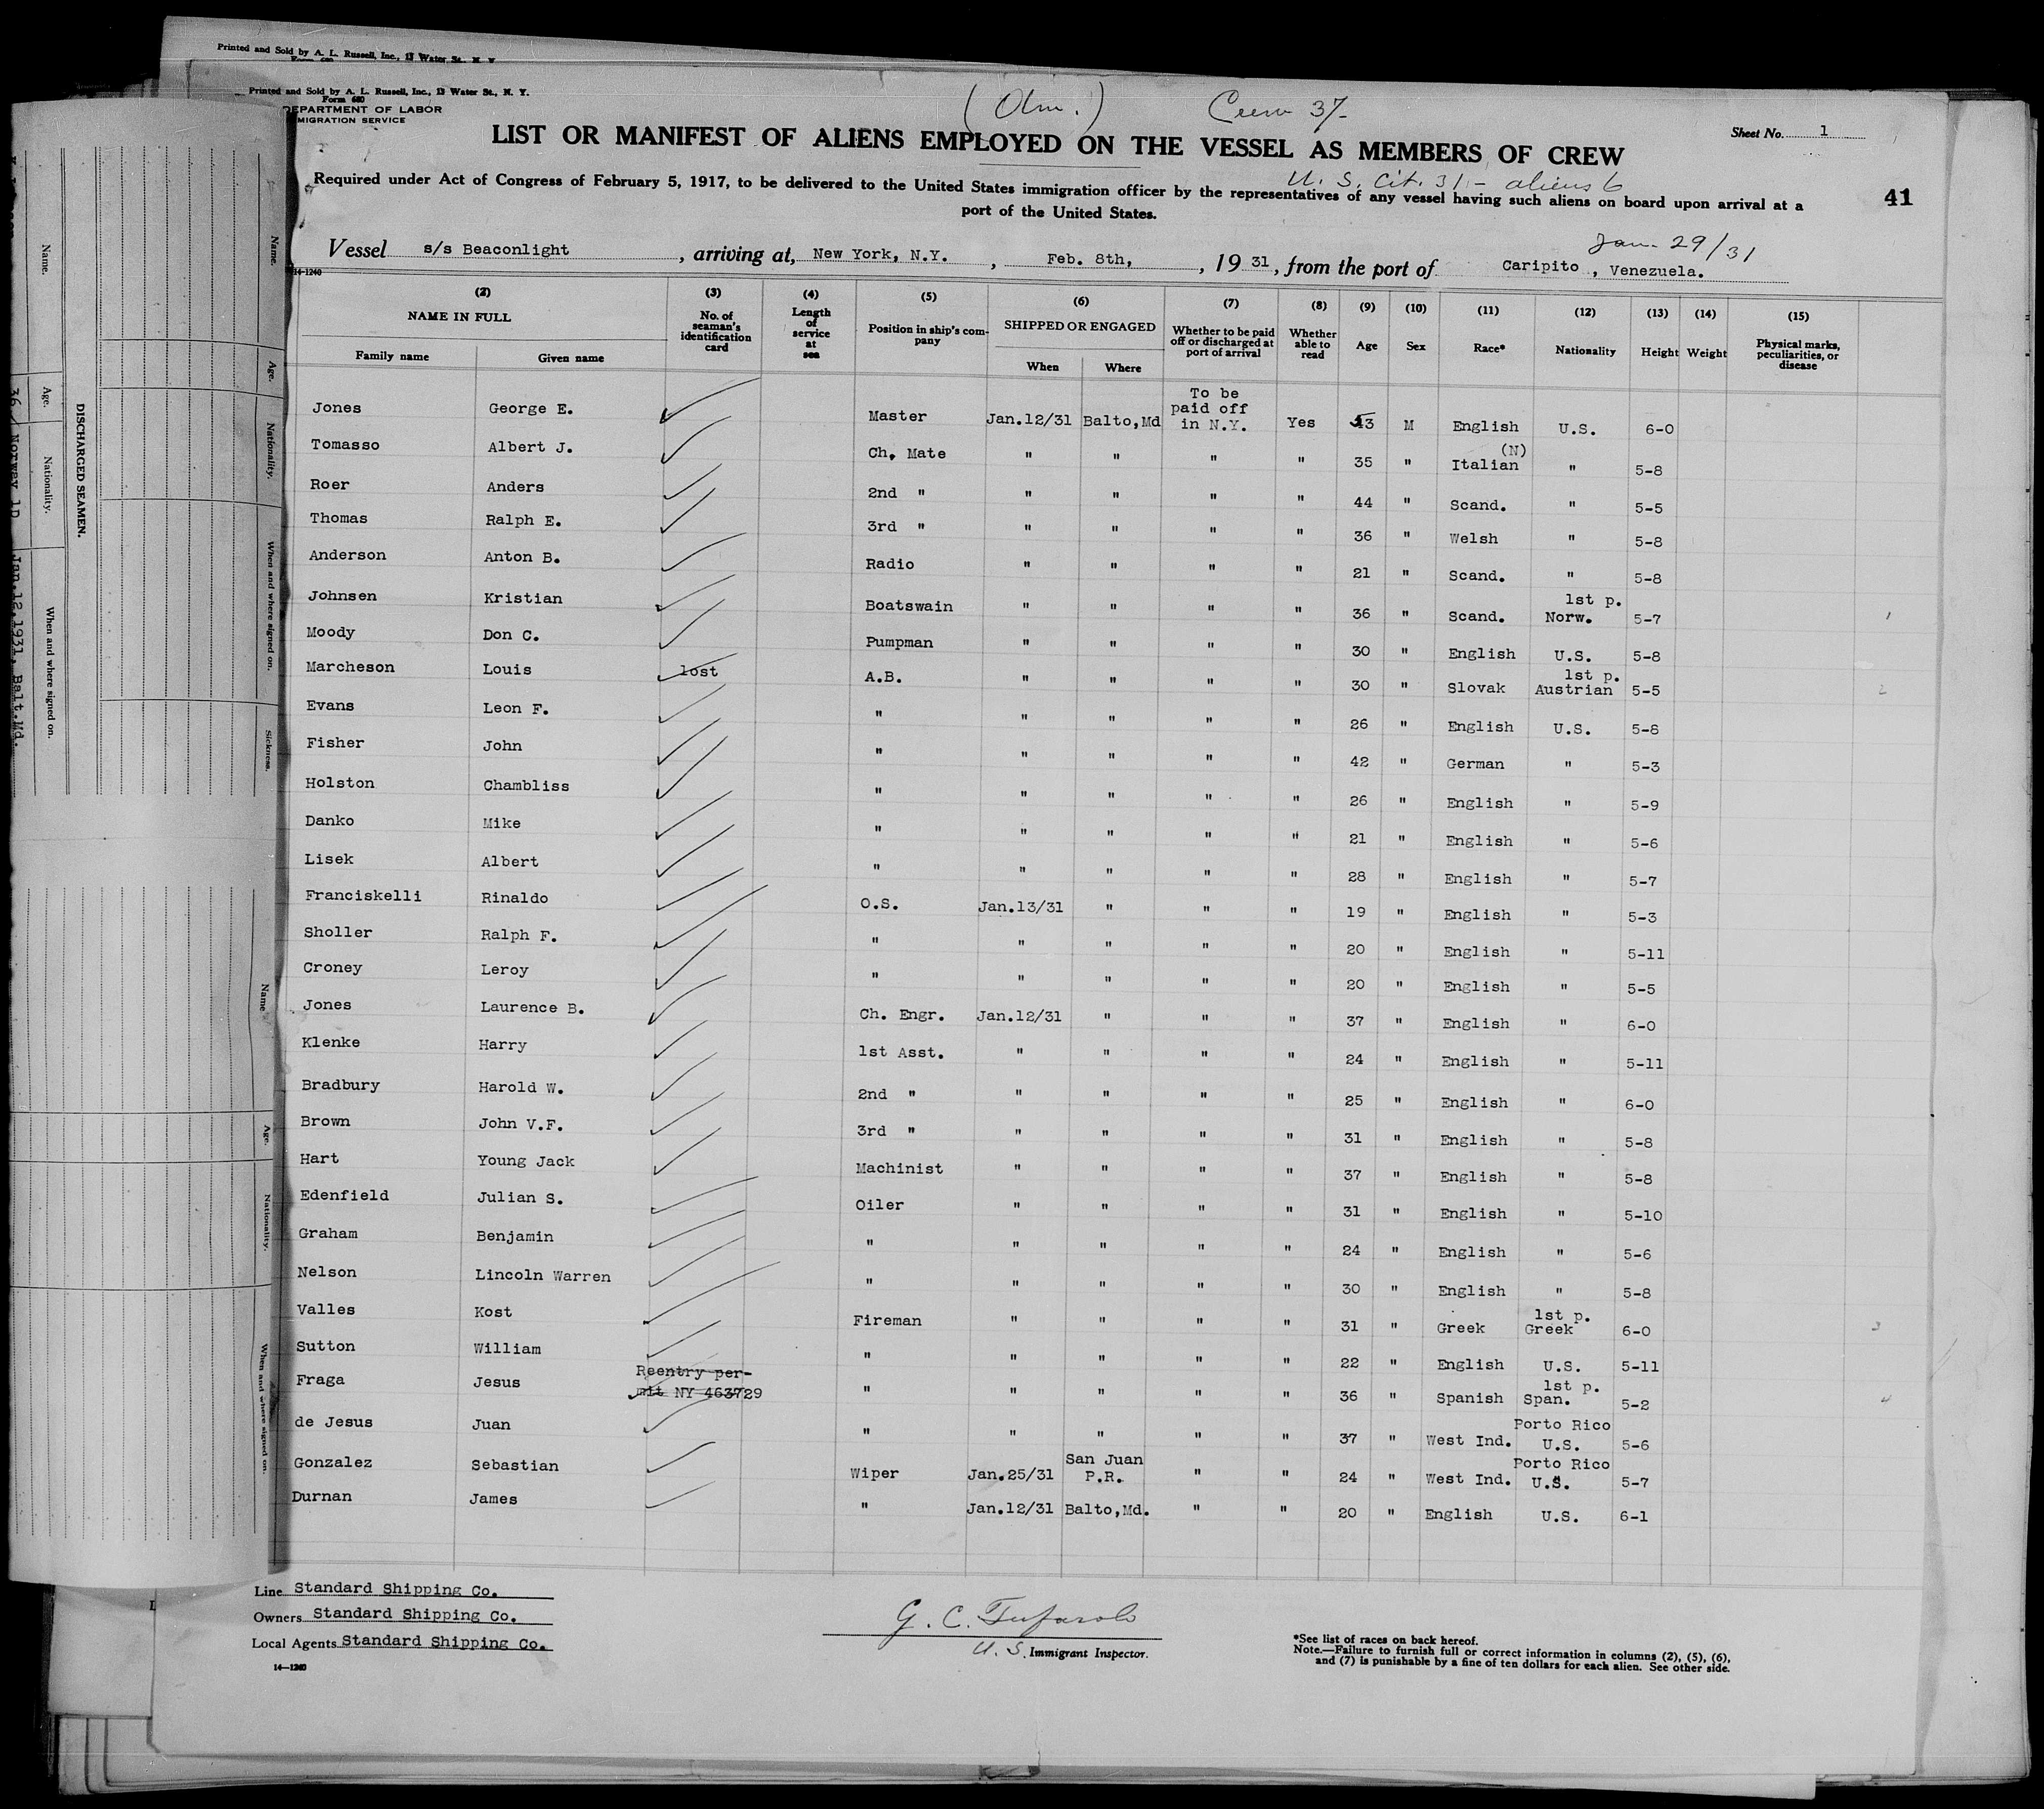 Printed and Sold by A. L. Russell, Inc., 13 Water St., N. Y.
Form 680
Printed and Sold by A. L. Russell, Inc., 13 Water St., N. Y.
Form 680
DEPARTMENT OF LABOR
MIGRATION SERVICE
Crew 37-
Sheet No. 1
LIST OR MANIFEST OF ALIENS EMPLOYED ON THE VESSEL AS MEMBERS OF CREW
U. S. Cit. 31 - aliens 6
Required under Act of Congress of February 5, 1917, to be delivered to the United States immigration officer by the representatives of any vessel having such aliens on board upon arrival at a
port of the United States.
41
Jan. 29/31
Vessel s/s Beaconlight, arriving at, New York, N.Y., Feb. 8th, , 19 31, from the port of Caripito, Venezuela.
14-1240
(2) (3) (4) (5) (6) (7) (8) (9) (10) (11) (12) (13) (14) (15)
NAME IN FULL No. of seaman's identification card Length of service at sea Position in ship's company SHIPPED OR ENGAGED Whether to be paid off or discharged at port of arrival Whether able to read Age Sex Race* Nationality Height Weight Physical marks, peculiarities, or disease
Family name Given name When Where
Jones George E. Master Jan.12/31 Balto,Md To be paid off in N.Y. Yes 43 M English U.S. 6-0
Tomasso Albert J. Ch. Mate " " " " 35 " (N) Italian " 5-8
Roer Anders 2nd " " " " " 44 " Scand. " 5-5
Thomas Ralph E. 3rd " " " " " 36 " Welsh " 5-8
Anderson Anton B. Radio " " " " 21 " Scand. " 5-8
Johnsen Kristian Boatswain " " " " 36 " Scand. 1st p. Norw. 5-7 1
Moody Don C. Pumpman " " " " 30 " English U.S. 5-8
Marcheson Louis lost A.B. " " " " 30 " Slovak 1st p. Austrian 5-5 2
Evans Leon F. " " " " " 26 " English U.S. 5-8
Fisher John " " " " " 42 " German " 5-3
Holston Chambliss " " " " " 26 " English " 5-9
Danko Mike " " " " " 21 " English " 5-6
Lisek Albert " " " " " 28 " English " 5-7
Franciskelli Rinaldo O.S. Jan.13/31 " " " 19 " English " 5-3
Sholler Ralph F. " " " " " 20 " English " 5-11
Croney Leroy " " " " " 20 " English " 5-5
Jones Laurence B. Ch. Engr. Jan.12/31 " " " 37 " English " 6-0
Klenke Harry 1st Asst. " " " " 24 " English " 5-11
Bradbury Harold W. 2nd " " " " " 25 " English " 6-0
Brown John V.F. 3rd " " " " " 31 " English " 5-8
Hart Young Jack Machinist " " " " 37 " English " 5-8
Edenfield Julian S. Oiler " " " " 31 " English " 5-10
Graham Benjamin " " " " " 24 " English " 5-6
Nelson Lincoln Warren " " " " " 30 " English " 5-8
Valles Kost Fireman " " " " 31 " Greek 1st p. Greek 6-0 3
Sutton William " " " " " 22 " English U.S. 5-11
Fraga Jesus Reentry per-mit NY 463729 " " " " " 36 " Spanish 1st p. Span. 5-2 4
de Jesus Juan " " " " " 37 " West Ind. Porto Rico U.S. 5-6
Gonzalez Sebastian Wiper Jan.25/31 San Juan P.R. " " 24 " West Ind. Porto Rico U.S. 5-7
Durnan James " Jan.12/31 Balto,Md. " " 20 " English U.S. 6-1
Line Standard Shipping Co.
Owners Standard Shipping Co.
Local Agents Standard Shipping Co.
14—1240
U. S. Immigrant Inspector.
*See list of races on back hereof.
Note.—Failure to furnish full or correct information in columns (2), (5), (6),
and (7) is punishable by a fine of ten dollars for each alien. See other side.
Name.
Age.
Nationality.
When and where signed on.
DISCHARGED SEAMEN.
36 Norway 1P Jan.12.1931, Balt.Md.
Name.
Age.
Nationality.
When and where signed on.
Sickness.
Name
Age.
Nationality.
When and where signed on.